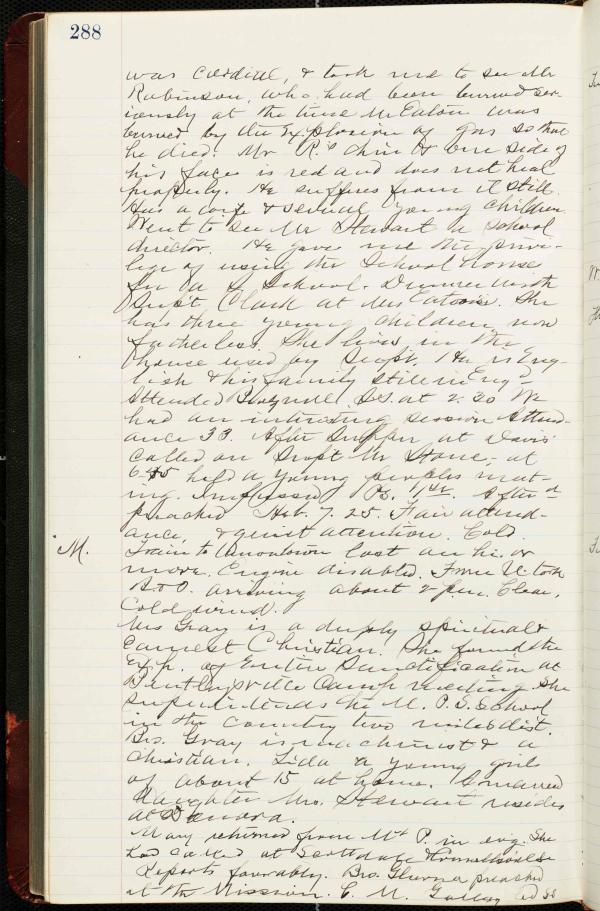 288
was cordial, & took me to see Mr
Robinson, who had been burned ser-
iously at the time Mr Eaton was
burned by the explosion of gas so that
he died. Mr R's chin & one side of
his face is red and does not heal
properly. He suffers from it still.
Has a wife & several young children.
Went to see Mr Stewart a school
director. He gave me the privi-
lege of using the School house
for a S. School. Dinner with
Supt. Clark at Mrs Eaton's. She
has three young children now
fatherless. She lives in the
house used by Supt. He is Eng-
lish & his family still in Eng-
Attended S.S. at 2:30 We
had an interesting session Attend-
ance 33. After Supper at Davis'
called on Supt Mr Stone, at
6-45 held a young peoples meet-
ing. Ps. 1st. After
preached Heb. 7.25. Fair attend-
ance, & quiet attention. Cold.
M. Train to Uniontown lost an hr. or
more. Engine disabled. From U. took
B & O. arriving about 2 p.m. Clear,
Cold wind.
Mrs Gray is a deeply spiritual &
earnest Christian. She found the
Exp. of Entire Sanctification at
Bentleysville Camp meeting She
superintends the M. P. S. School
in the country two miles dist.
Bro. Gray is machinist & a
Christian. Lida a young girl
of about 15 at home. A married
daughter Mrs. Stewart resides
at Donora.
Mary returned from Mt P. in evg. She
had called at Scottdale
Reports favorably. Bro. preached
at the Mission. C. M.